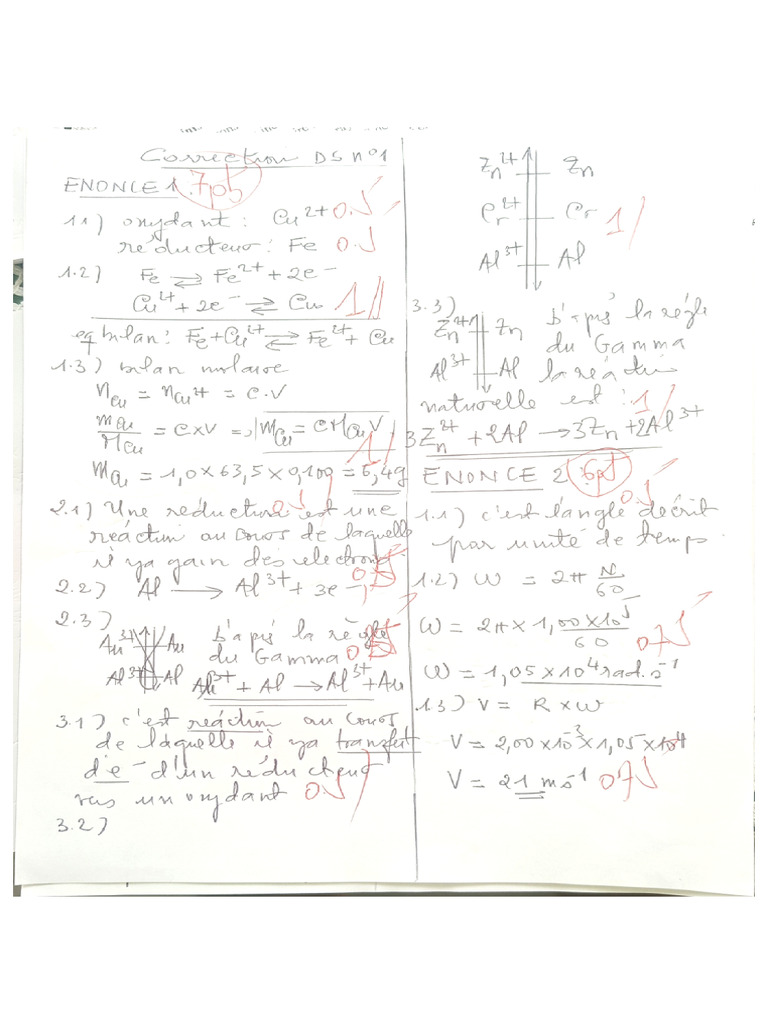 Correction DS n°1
ENONCE 1 7pts
1.1) oxydant : Cu²⁺ 0.5
réducteur : Fe 0.5
1.2) Fe ⇌ Fe²⁺ + 2e⁻
Cu²⁺ + 2e⁻ ⇌ Cu 1
eq bilan : Fe + Cu²⁺ ⇌ Fe²⁺ + Cu
1.3) bilan molaire
n_Cu = n_Cu²⁺ = C.V
m_Cu/M_Cu = C×V => m_Cu = C M_Cu V
1
m_Cu = 1,0 × 63,5 × 0,100 = 6,4g
2.1) Une réduction est une
réaction au cours de laquelle
il ya gain des électrons
2.2) Al → Al³⁺ + 3e⁻
2.3)
Au³⁺ Au D'après la règle
Al³⁺ Al du Gamma
Au³⁺ + Al → Al³⁺ + Au
3.1) c'est réaction au cours
de laquelle il ya transfert
d'e⁻ d'un réducteur
vers un oxydant 0.5
3.2)
Zn²⁺ Zn
Cr²⁺ Cr 1
Al³⁺ Al
3.3)
Zn²⁺ Zn D'après la régle
du Gamma
Al³⁺ Al la réaction
naturelle est : 1
3Zn²⁺ + 2Al → 3Zn + 2Al³⁺
ENONCE 2 6pt
0.5
1.1) c'est l'angle décrit
par unité de temps
1.2) ω = 2π N/60
ω = 2π × 1,00 × 10⁵/60 0.75
ω = 1,05 × 10⁴ rad.s⁻¹
1.3) V = R × ω
V = 2,00 × 10⁻³ × 1,05 × 10⁴
V = 21 ms⁻¹ 0.75